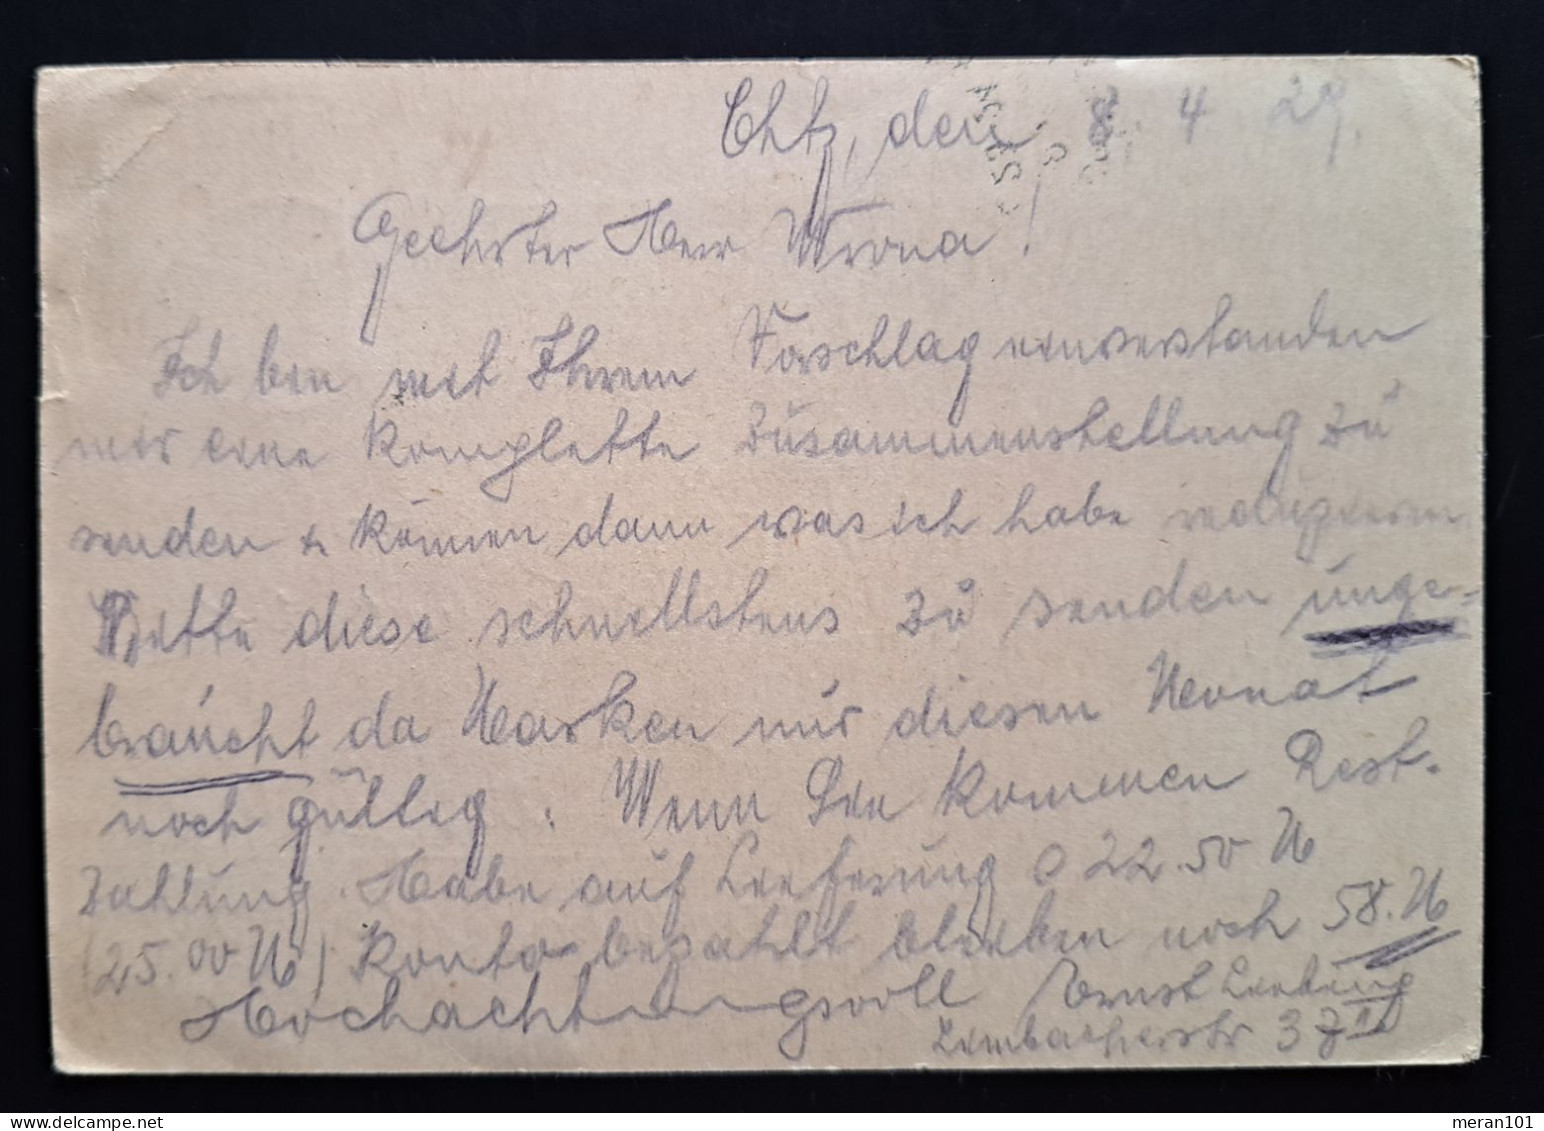 Chtz, den 8. 4 29.
Geehrter Herr Wrona!
Ich bin mit Ihrem Vorschlag einverstanden
mir eine komplette Zusammenstellung zu
senden & können dann was ich habe reduzieren
Bitte diese schnellstens zu senden unge-
braucht da Marken nur diesen Monat
noch gültig. Wenn Sie kommen Rest-
Zahlung. Habe auf Lieferung 22.50 M
(25.00 M) Konto bezahlt bleiben noch 58. M
Hochachtungsvoll Ernst
Limbacherstr 37 II
meran101